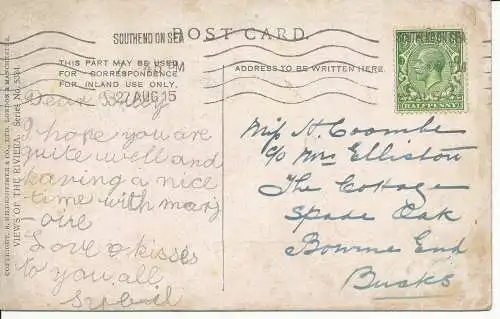 POST CARD.
SOUTHEND ON SEA
PM
27 AUG 15
SOUTHEND ON SEA
HALFPENNY
THIS PART MAY BE USED
FOR CORRESPONDENCE
FOR INLAND USE ONLY.
ADDRESS TO BE WRITTEN HERE.
VIEWS OF THE RIVIERA Series No.
Dear
I hope you are
quite well and
having a nice
time with marj
-oire
Love & kisses
to you all
Sybil
Miss H. Coombe
c/o Mrs Elliston
The Cottage
Spade Oak
Bourne End
Bucks